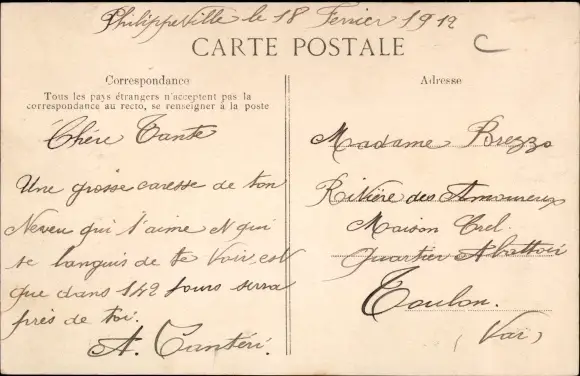 Philippeville le 18 Fevrier 1912
CARTE POSTALE
Correspondance
Tous les pays étrangers n'acceptent pas la
correspondance au recto, se renseigner à la poste
Chére Tante
Une grosse caresse de ton
Neveu qui t'aime et qui
se languis de te Voir, est
que dans 142 Jours serra
près de toi.
A. Cantéri.
Adresse
Madame Brezzo
Rivière des Amoureux
Maison Crel.
Quartier Abattoir
Toulon.
(Var)